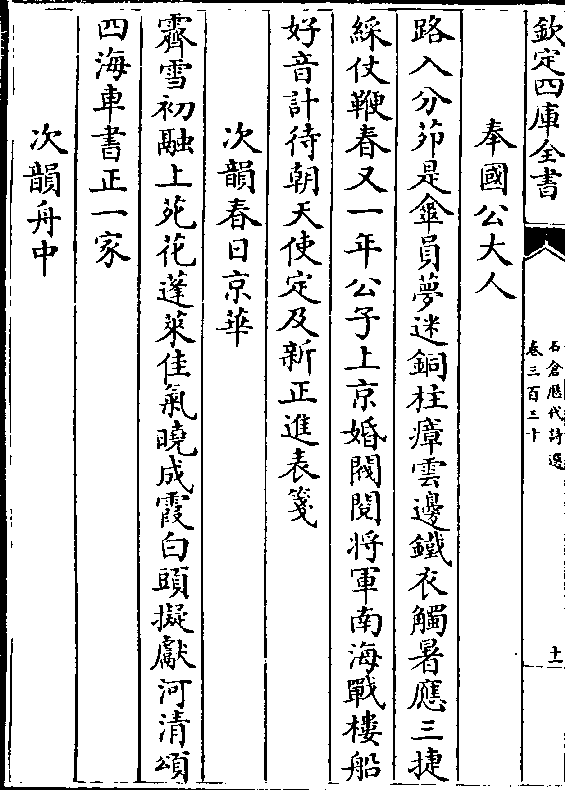 欽定四庫全書
石倉歷代詩選
卷三百三十
十一
奉國公大人
路入分茆是傘員夢迷銅柱瘴雲邊鐵衣觸暑應三捷
綵仗鞭春又一年公子上京婚閥閱将軍南海戰樓船
好音計待朝天使定及新正進表箋
次韻春日京華
霽雪初融上苑花蓬萊佳氣曉成霞白頭擬獻河清頌
四海車書正一家
次韻舟中